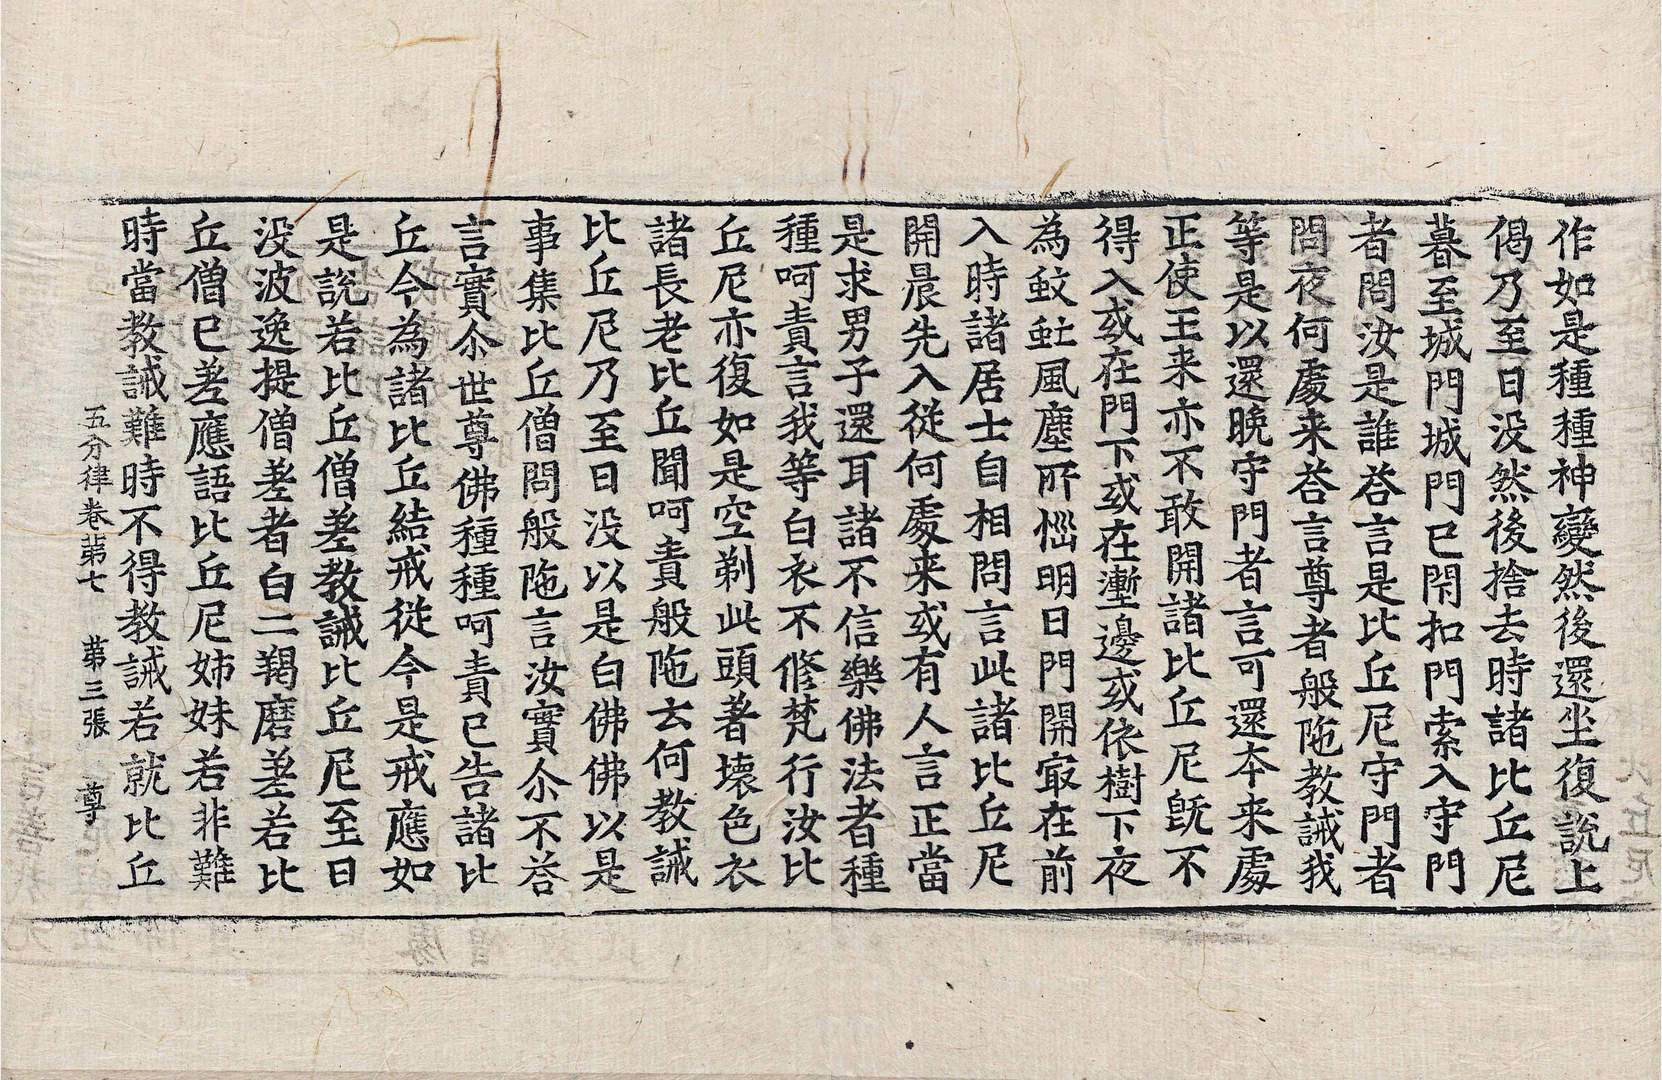 作如是種種神變然後還坐復說上
偈乃至日没然後捨去時諸比丘尼
暮至城門城門已閇扣門索入守門
者問汝是誰荅言是比丘尼守門者
問夜何處来荅言尊者般陁教誡我
等是以還晩守門者言可還本来處
正使王来亦不敢開諸比丘尼旣不
得入或在門下或在壍邊或依樹下夜
為蚊䖟風塵所惱明日門開㝡在前
入時諸居士自相問言此諸比丘尼
開晨先入從何處来或有人言正當
是求男子還耳諸不信樂佛法者種
種呵責言我等白衣不修梵行汝比
丘尼亦復如是空剃此頭著壞色衣
諸長老比丘聞呵責般陁云何教誡
比丘尼乃至日没以是白佛佛以是
事集比丘僧問般陁言汝實尒不荅
言實尒世尊佛種種呵責已告諸比
丘今為諸比丘結戒從今是戒應如
是說若比丘僧差教誡比丘尼至日
没波逸提僧差者白二羯磨差若比
丘僧已差應語比丘尼姉妹若非難
時當教誡難時不得教誡若就比丘
五分律卷苐七 苐三張 尊